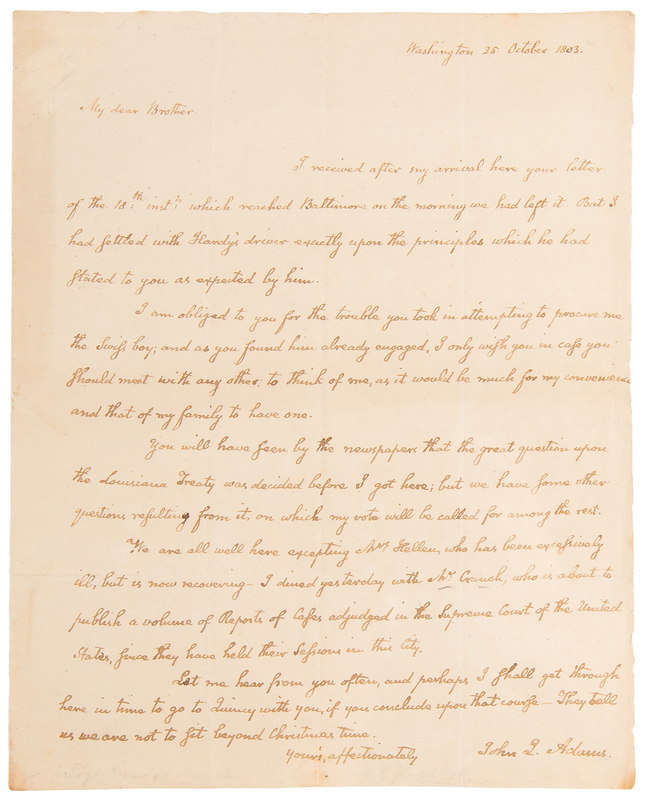 Washington 25 October 1803.
My dear Brother.
I received after my arrival here your letter
of the 18th: inst: which reached Baltimore on the morning we had left it But I
had settled with Hardy's driver exactly upon the principles which he had
stated to you as expected by him.
I am obliged to you for the trouble you took in attempting to procure me
the Swiss boy; and as you found him already engaged, I only wish you in case you
should meet with any other, to think of me, as it would be much for my convenience
and that of my family to have one.
You will have seen by the newspapers that the great question upon
the Louisiana Treaty was decided before I got here; but we have some other
questions resulting from it, on which my vote will be called for among the rest.
We are all well here excepting Mrs Hellen, who has been excessively
ill, but is now recovering— I dined yesterday with Mr. Cranch, who is about to
publish a volume of Reports of Cases adjudged in the Supreme Court of the United
States, since they have held their Sessions in this City.
Let me hear from you often, and perhaps I shall get through
here in time to go to Quincy with you, if you conclude upon that course— They tell
us we are not to sit beyond Christmas time.
Your's, affectionately John Q. Adams.